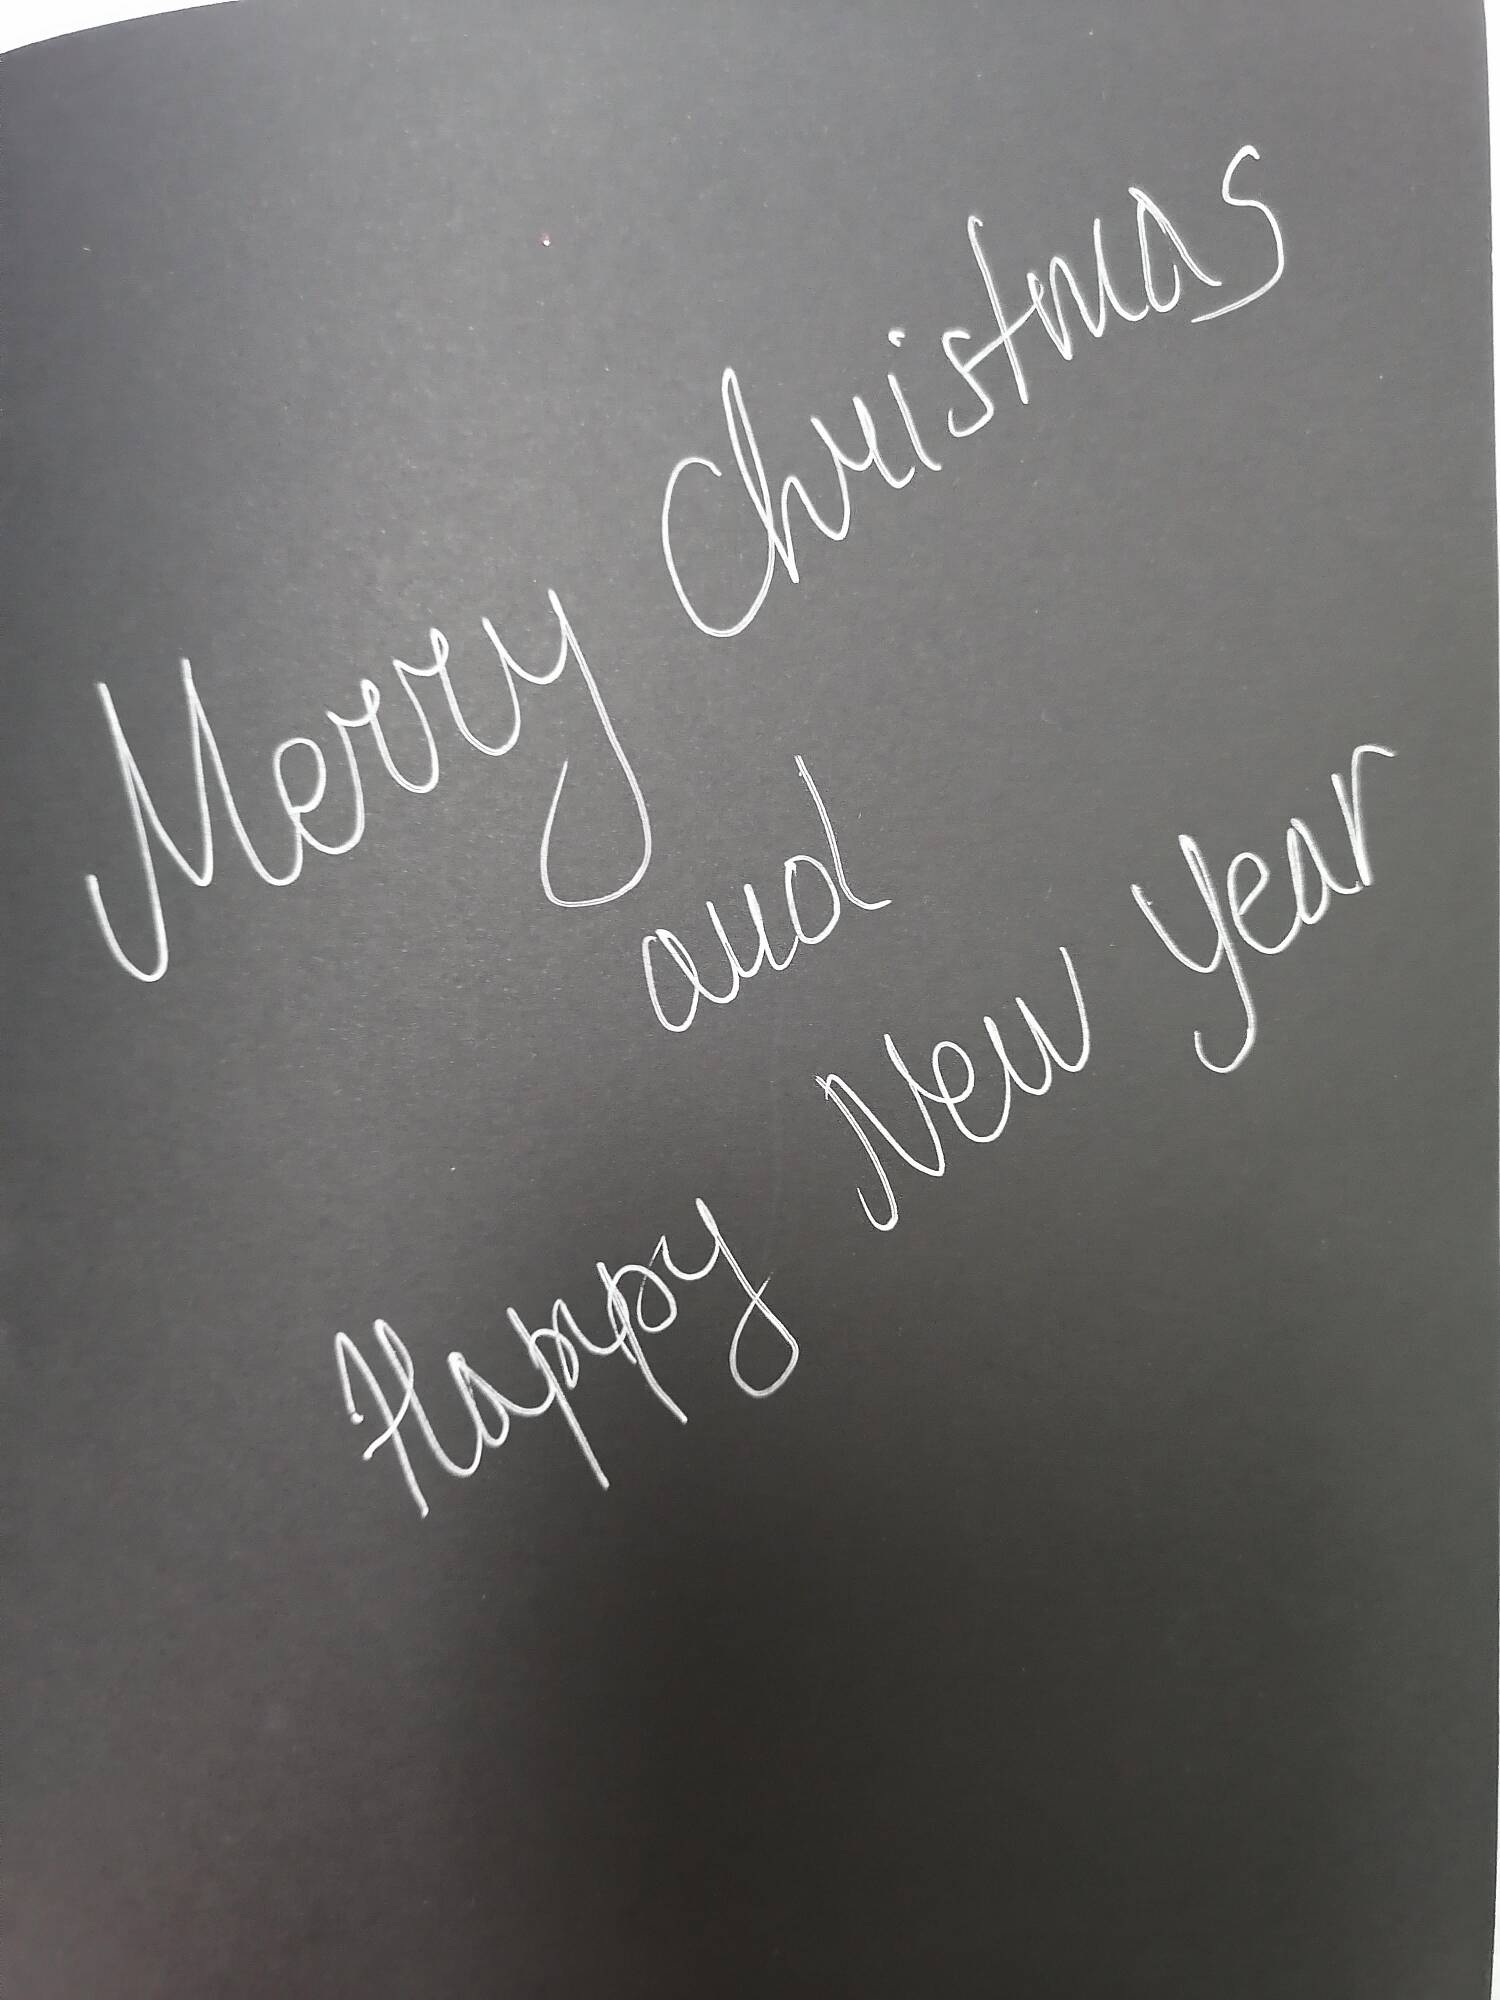 Merry Christmas
and
Happy New Year